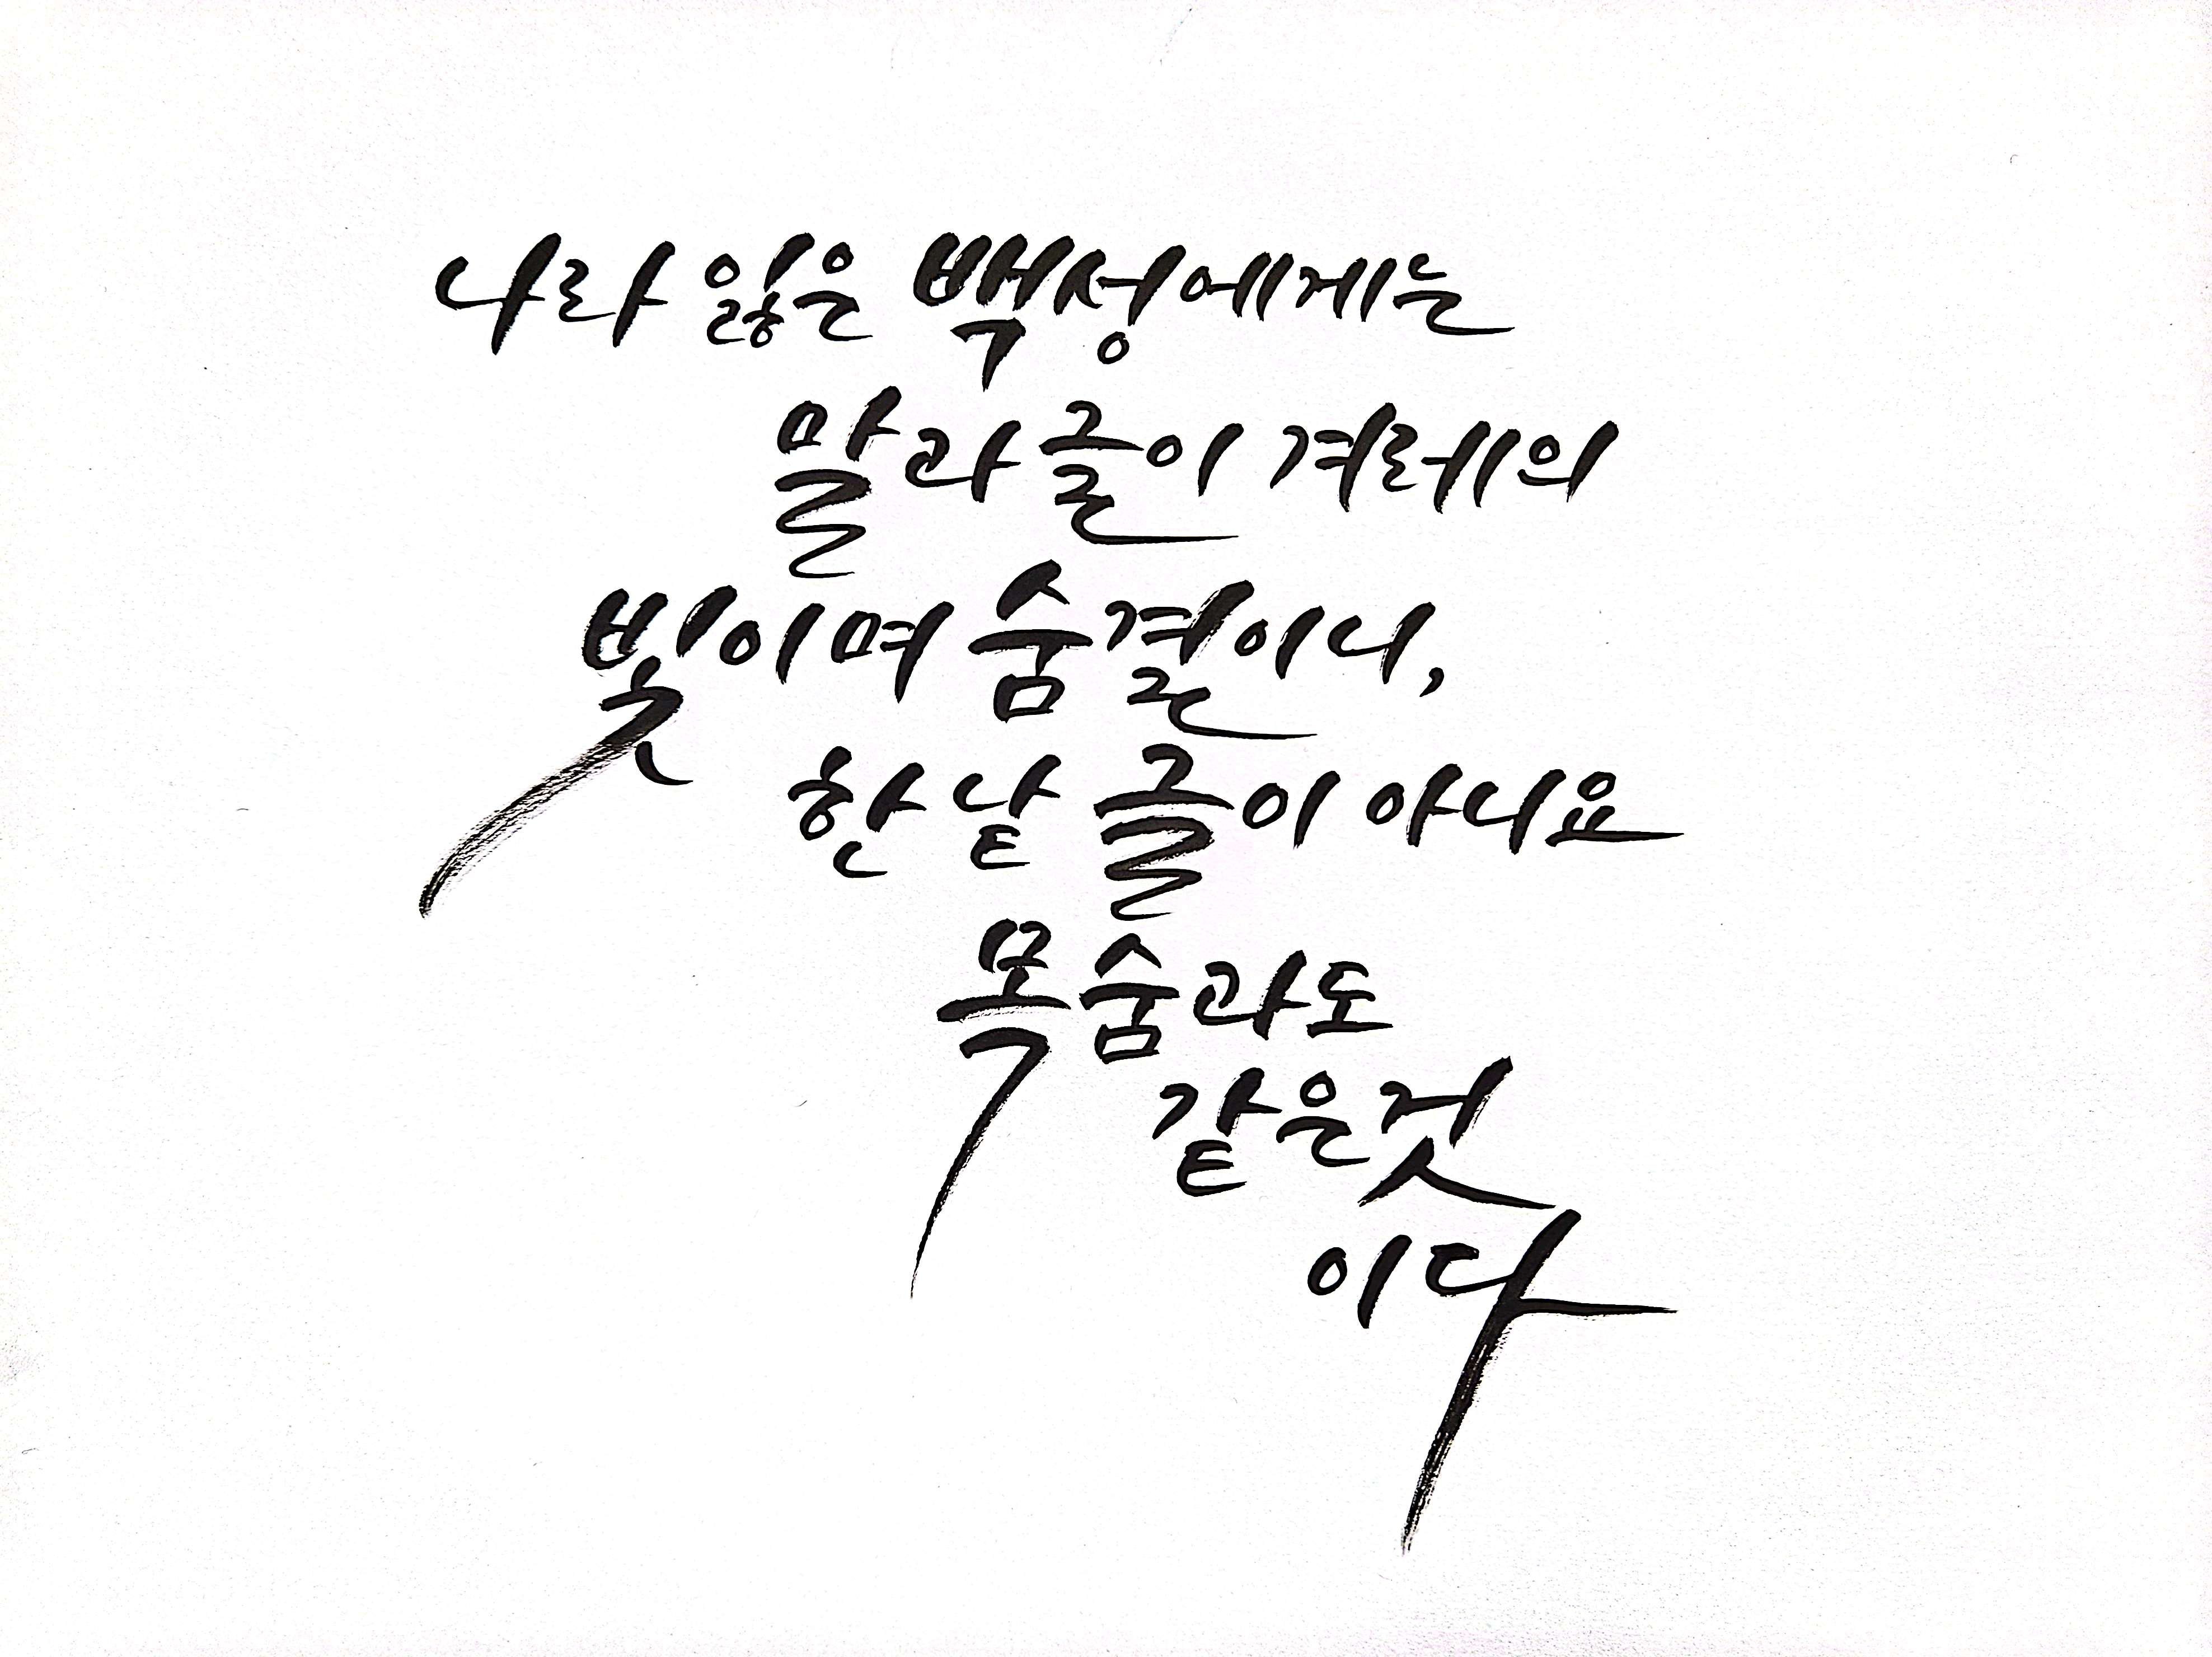 나라 잃은 백성에게는
말과 글이 겨레의
빛이며 숨결이니,
한낱 글이 아니요
목숨과도
같은것
이다